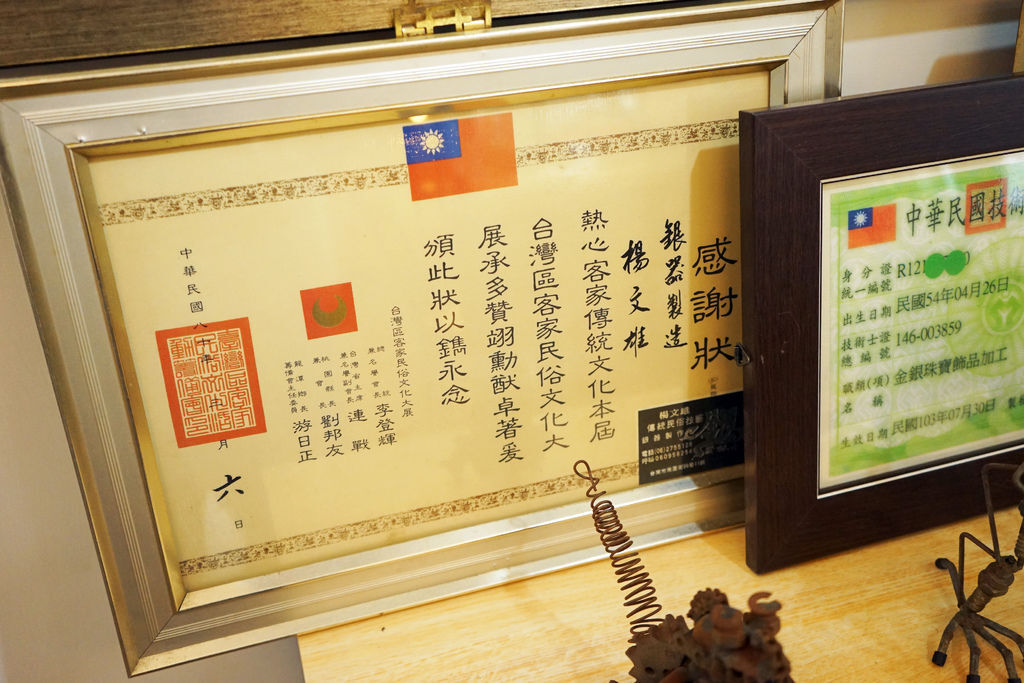 感謝狀
銀器製造
楊文雄
熱心客家傳統文化本屆
台灣區客家民俗文化大
展承多贊翊勳猷卓著爰
頒此狀以鐫永念
台灣區客家民俗文化大展
總統
兼名譽會長 李登輝
台灣省主席
兼名譽副會長 連戰
桃園縣長
兼會長 劉邦友
龍潭鄉長
籌備會主任委員 游日正
中華民國八十
月
六
日
楊文雄
傳統民俗技藝
銀器製作
中華民國技術
身分證
統一編號 R121
出生日期 民國54年04月26日
技術士證
總編號 146-003859
職類(項)
名稱 金銀珠寶飾品加工
生效日期 民國103年07月30日